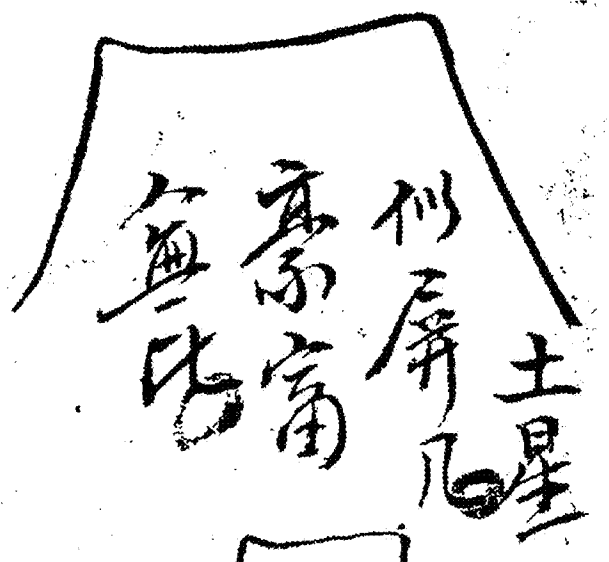 土星
似屏几
豪富
無比